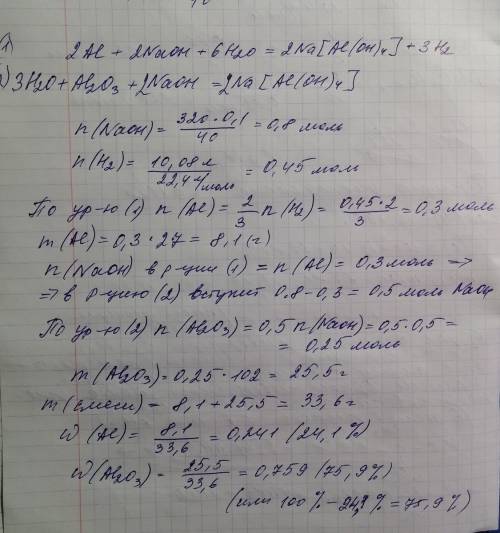 1) 2Al + 2NaOH + 6H2O = 2Na[Al(OH)4] + 3H2
2) 3H2O + Al2O3 + 2NaOH = 2Na[Al(OH)4]
n(NaOH) = 320·0,1/40 = 0,8 моль
n(H2) = 10,08л/22,4л/моль = 0,45 моль
По ур-ю (1) n(Al) = 2/3 n(H2) = 0,45·2/3 = 0,3 моль
m(Al) = 0,3·27 = 8,1 (г)
n(NaOH) в р-ции (1) = n(Al) = 0,3 моль →
⇒ в р-цию (2) вступит 0.8 - 0,3 = 0,5 моль NaOH
По ур-ю (2) n(Al2O3) = 0,5 n(NaOH) = 0,5·0,5 =
= 0,25 моль
m(Al2O3) = 0,25·102 = 25,5 г
m(смеси) = 8,1 + 25,5 = 33,6 г
W(Al) = 8,1/33,6 = 0,241 (24,1%)
W(Al2O3) = 25,5/33,6 = 0,759 (75,9%)
(или 100% - 24,1% = 75,9%)